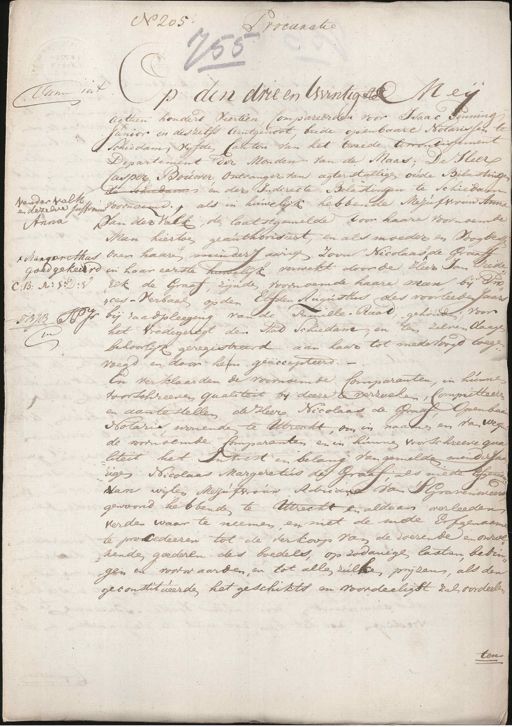 No 205. Procuratie
755
Op den drie en twintigste Meij
agtien honderd veertien, compareerden voor Isaac
Junior en deszelfs Ambtgenoot, beide openbaare Notarissen te
Schiedam, van het tweede Arrondissement
Departement der Monden van de Maas; De Heer
Jasper Bouwer Ontvanger der agterstallige oude Belastingen
en der Indirecte Belastingen te Schiedam
voornoemd, als in huwelijk hebbende Mejufvrouw Anna
van der Valk, de laatstgemelde door haare voornoemde
Man hiertoe geauthoriseert, en als moeder en Voogdesse
over haare minderjarige Zoon Nicolaas de Graaf
in haar eerste huwelijk verwekt door de Heer
de Graaf, zijnde voornoemde haare man bij Pro
ces-Verbaal op den Elfden Augustus des voorleden jaars
bij raadpleeging van de Familie-Raad, gehouden voor
het Vredegeregt der Stad Schiedam, en ten zelven dage
behoorlijk geregistreerd aan haar tot medevoogd toege
voegd en door hem geaccepteerd.
En verklaarden de voornoemde Comparanten, in hunne
voorschreeven qualiteit bij deeze te verzoeken, Committeeren
en aantestellen, de Heer Nicolaas de Graaf Openbaar
Notaris wonende te Utrecht, om in naam en van wege
de voornoemde Comparanten en in hunne voorschreeve qua
liteit het regt en belang van gemelde minderja
rigen Nicolaas Margerethus de Graaf, als mede Erfgenaam
van wijlen Mejufvrouw Adriana van 's Gravenwaard
gewoond hebbende te Utrecht en aldaar overleeden,
verder waar te neemen, en met de mede Erfgenaamen
te procedeeren tot de verkoop van de roerende en onroe
rende goederen des boedels, op zodanige lasten, bedin
gen en voorwaarden, en tot alle zulke prijzen, als den
geconstitueerde het geschikts en voordeeligst zal oordeelen
ten
van der Valk
en derzelver
Anna
Margerethus
goedgekeurd